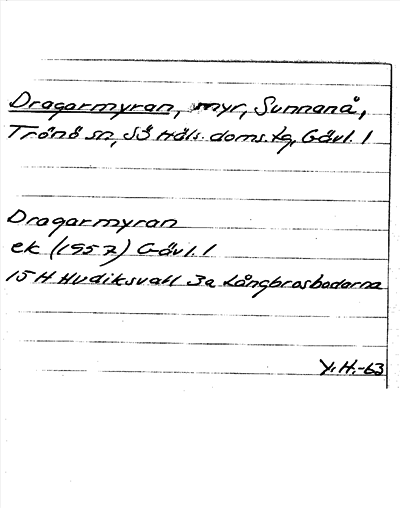 Dragarmyran, myr, Sunnanå,
Trönö sn, Sö Häls. doms.tg, Gävl. l
Dragarmyran
ek (1957) Gävl. l
15 H Hudiksvall 3a Långbrosbodarna
Y.H.-63